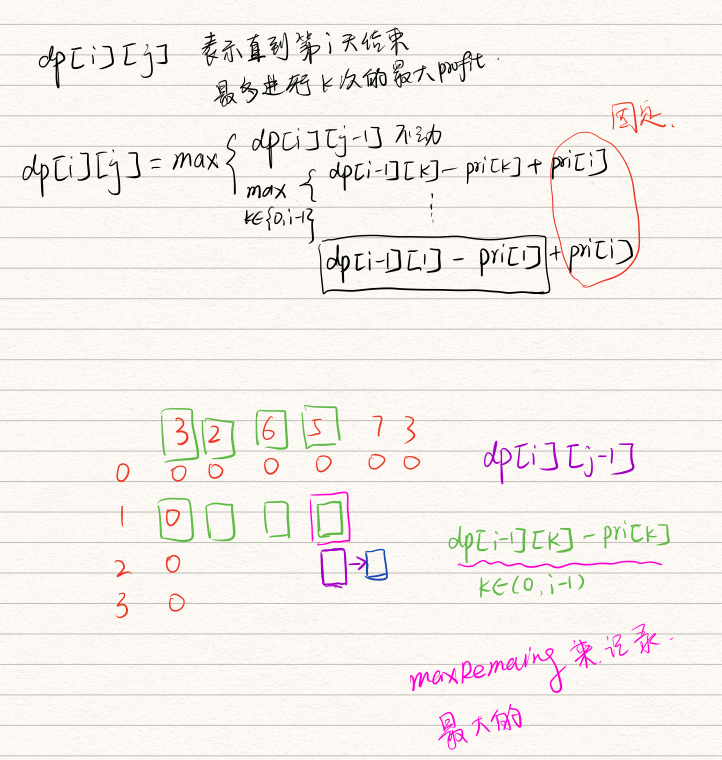 dp[i][j] 表示直到第i天结束
最多进行k次的最大profit.
固定.
dp[i][j] = max{ dp[i][j-1] 不动
max { dp[i-1][k] - pri[k] + pri[i]
k∈{0,i-1}
⋮
dp[i-1][1] - pri[1] + pri[i]
3 2 6 5 7 3
0 0 0 0 0 0 0
dp[i][j-1]
1 0
dp[i-1][k] - pri[k]
2 0
k∈(0,i-1)
3 0
maxRemaing 来记录.
最大的